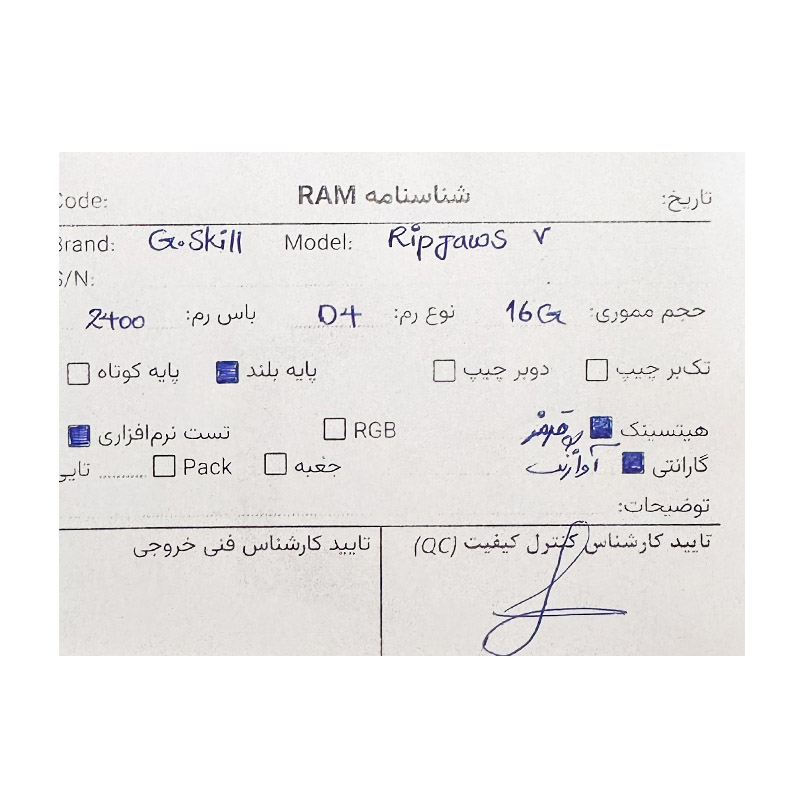 تاریخ: شناسنامه RAM Code:
Brand: G.Skill Model: Ripjaws V
S/N:
حجم مموری: 16G نوع رم: D4 باس رم: 2400
تک‌بر چیپ دوبر چیپ پایه بلند پایه کوتاه
هیتسینک قرمز RGB تست نرم‌افزاری
گارانتی آواژنگ جعبه Pack ........... تایی
توضیحات:
تایید کارشناس کنترل کیفیت (QC) تایید کارشناس فنی خروجی